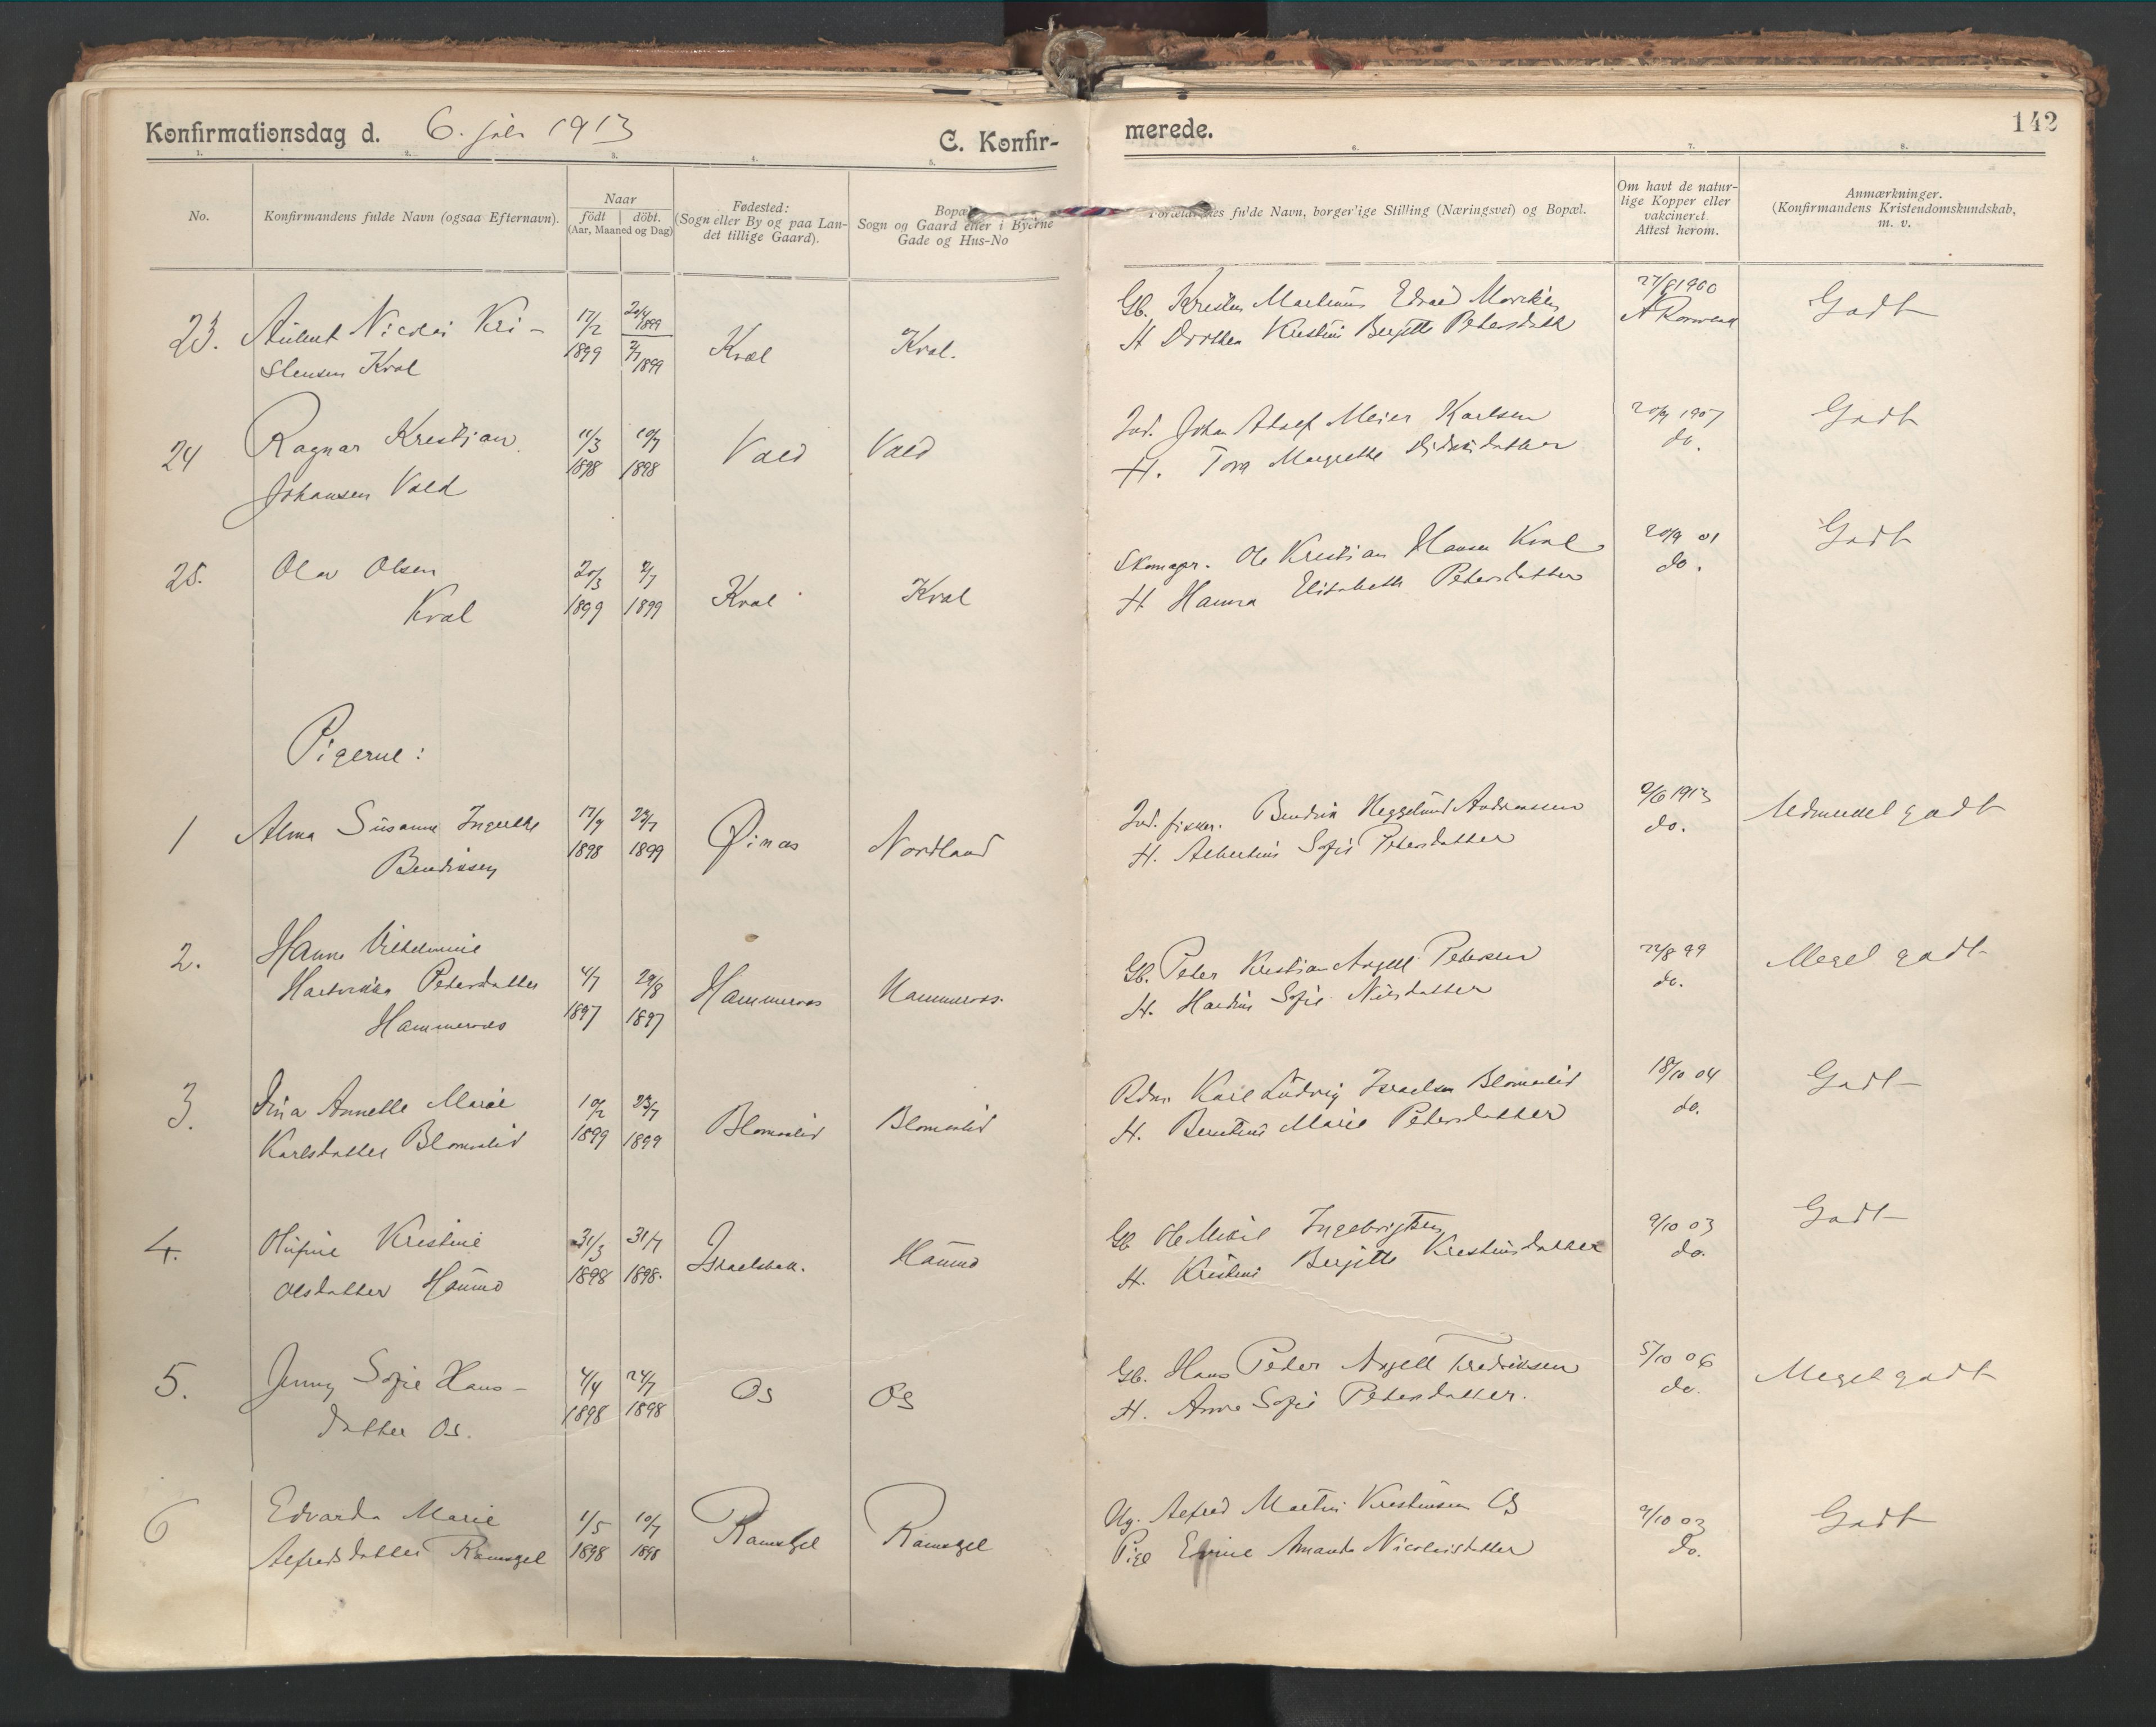 Konfirmationsdag d. 6. juli 1913
C. Konfir-
merede.
142
1. 2. 3. 4. 5. 6. 7. 8.
No.
Konfirmandens fulde Navn (ogsaa Efternavn).
Naar
födt döbt.
(Aar, Maaned og Dag)
Fødested:
(Sogn eller By og paa Lan-
det tillige Gaard).
Sogn og Gaard eller i Byerne
Gade og Hus-No
fulde Navn, borgerlige Stilling (Næringsvei) og Bopæl.
Om havt de natur-
lige Kopper eller
vakcineret.
Attest herom.
Anmærkninger.
(Konfirmandens Kristendomskundskab,
m. v.
23. Nicolai Kri-
stensen Kval
17/2 1899
1899
Kval
Kval.
Gb. Kristen Martinus Edvard
H Dorthea Kristine Bergitte Petersdatter
27/8 1900
Godt
24 Ragnar Kristian
Johansen Vald
11/3 1898
10/7 1898
Vald
Vald
Ind. Johan Adolf Meier Karlsen
H. Tora Margrethe
1907
do.
Godt
25. Olav Olsen
Kval
20/3 1899
2/7 1899
Kval
Kval
Skomagr. Ole Kristian Hansen Kval
H Hanna Elisabeth Petersdatter
20/9 01
do.
Godt
Pigerne:
1 Alma Susanne Ingerthe
Bendiksen
17/9 1898
23/7 1899
Øinas
Nordland
Ind. fisker. Bendik Heggelund Andreassen
H. Albertine Sofie Petersdatter
2/6 1913
do.
Udmerket godt
2. Hanne Vilhelmine
Hartvikka Petersdatter
Hammernes
4/7 1897
29/8 1897
Hammernes
Hammernes.
Gb. Peter Kristian Angell Petersen
H. Hardine Sofie Nilsdatter
22/8 99
do.
Meget godt
3. Dina Annette Marie
Karlsdatter Blomslid
10/2 1899
23/7 1899
Blomslid
Blomslid
Rdm. Karl Ludvig Israelsen Blomslid
H. Berntine Marie Petersdatter
18/10 04
do.
Godt
4. Olufine Kristine
Olsdatter Haumo
31/3 1898
31/7 1898.
Israelsbak.
Haumo
Gb Ole Mikal Ingebrigtsen
H. Kristine Bergitte Kristensdatter
9/10 03
do.
Godt
5. Jenny Sofie Hans-
datter Os.
4/4 1898
24/7 1898
Os
Os
Gb. Hans Peder Angell Fredriksen
H. Anne Sofie Petersdatter.
5/10 06
do.
Meget godt
6 Edvarda Marie
Alfredsdatter Ramsgel
1/5 1898
10/7 1898
Ramsgel
Ramsgel
Ug. Alfred Martin Kristensen Os
Pige Emine Amanda Nicolaisdatter
9/10 03
do.
Godt